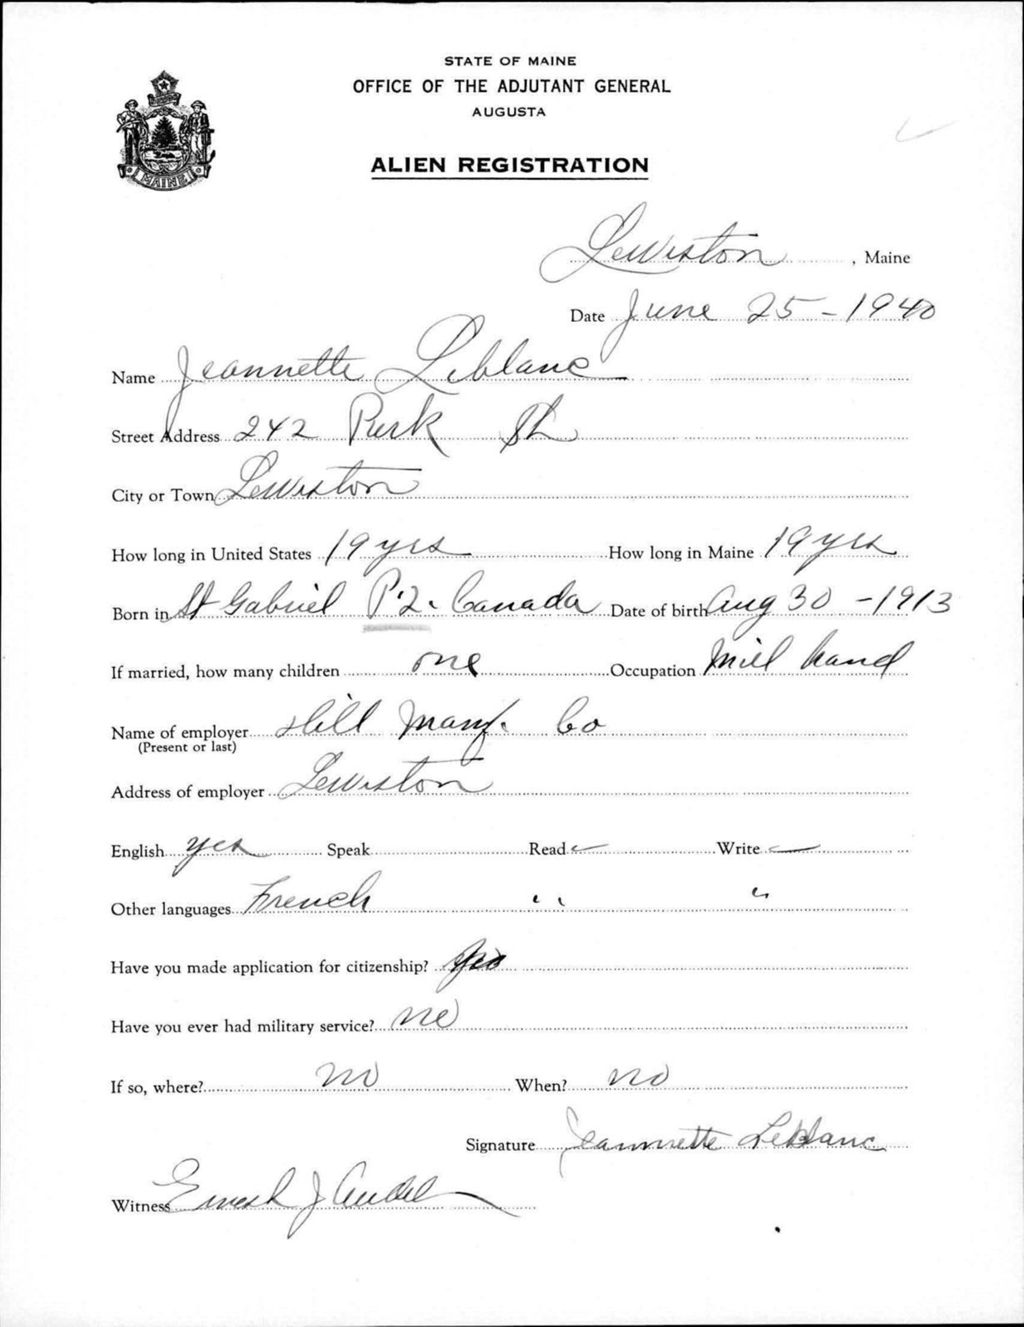 STATE OF MAINE
OFFICE OF THE ADJUTANT GENERAL
AUGUSTA
MAINE
ALIEN REGISTRATION
Lewiston, Maine
Date June 25 - 1940
Name Jeannette Leblanc
Street Address 242 Park St
City or Town Lewiston
How long in United States 19 yrs How long in Maine 19 yrs
Born in St Gabriel P.Q. Canada Date of birth Aug 30 - 1913
If married, how many children one Occupation Mill hand
Name of employer Hill Manf. Co
(Present or last)
Address of employer Lewiston
English yes Speak Read Write
Other languages French " "
Have you made application for citizenship?
Have you ever had military service? no
If so, where? no When? no
Signature Jeannette Leblanc
Witness Ernest J